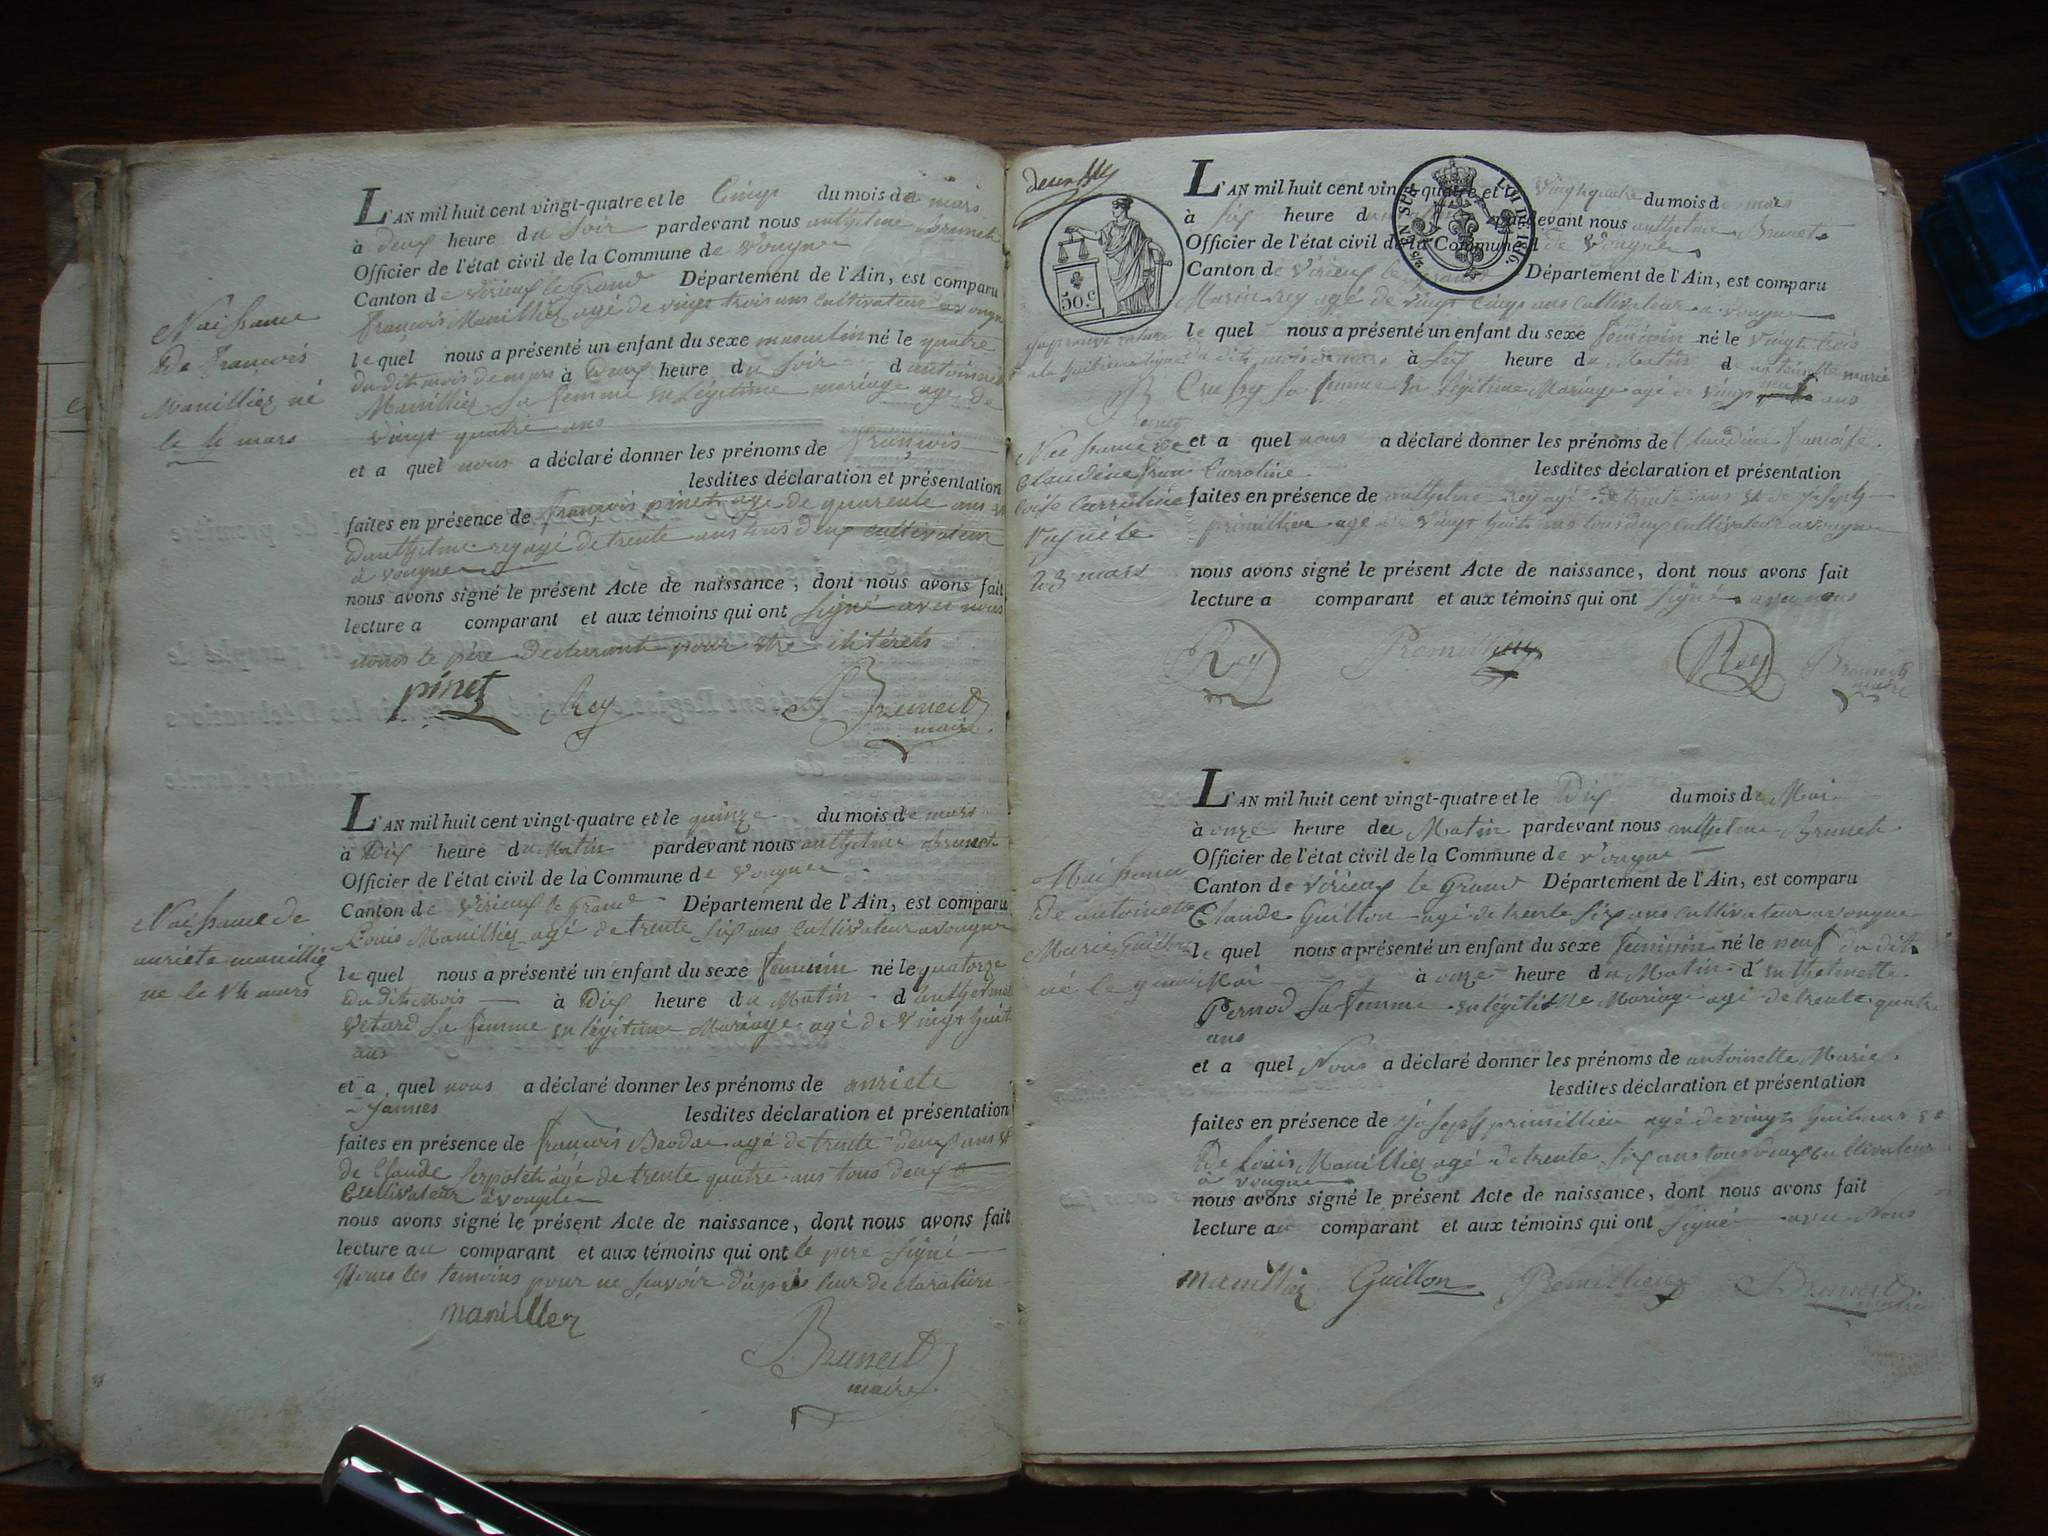 L'AN mil huit cent vingt-quatre et le cinq du mois de mars
à deux heure du soir pardevant nous anthelme Brunet
Officier de l'état civil de la Commune de Vongne
Canton de Virieux le Grand Département de l'Ain, est comparu
françois Manilliez agé de vingt trois ans cultivateur a vongne
le quel nous a présenté un enfant du sexe masculin né le quatre
du dit mois de mars à deux heure du soir d antoinet
Manilliez sa femme en légitime mariage agé de
vingt quatre ans
et a quel nous a déclaré donner les prénoms de françois
lesdites déclaration et présentation
faites en présence de françois pinet age de quarente ans et
d anthelme rey agé de trente ans tous deux cultivateur
à vongne
nous avons signé le présent Acte de naissance, dont nous avons fait
lecture a comparant et aux témoins qui ont signé avec nous
nons le père declarant pour etre
pinet Rey Brunet
maire
Naissance
De françois
Manilliez né
le 4 mars
L'AN mil huit cent vingt-quatre et le quinze du mois de mars
à Dix heure du Matin pardevant nous anthelme Brunet
Officier de l'état civil de la Commune de Vongne
Canton de Virieux le Grand Département de l'Ain, est comparu
Louis Manilliez agé de trente six ans cultivateur a vongne
le quel nous a présenté un enfant du sexe feminin né le quatorze
du dit Mois à Dix heure du Matin d anthelmet
Vetard sa femme en légitime Mariage agé de vingt huit
ans
et a quel nous a déclaré donner les prénoms de anriete
lesdites déclaration et présentation
faites en présence de françois agé de trente deux ans et
de Claude Serpolet agé de trente quatre ans tous deux
Cultivateur à vongne
nous avons signé le présent Acte de naissance, dont nous avons fait
lecture au comparant et aux témoins qui ont le pere signé
Nons les temoins pour ne savoir d'après leur declaration
manillier
Brunet
maire
Naissance de
anriete manilliez
ne le 14 mars
L'AN mil huit cent vingt-quatre et le vingt quatre du mois de mars
à six heure du pardevant nous anthelme Brunet
Officier de l'état civil de la Commune de Vongne
Canton de Virieux le grand Département de l'Ain, est comparu
Marin rey agé de vingt cinq ans cultivateur a vongne
le quel nous a présenté un enfant du sexe feminin né le vingt trois
du dit mois de mars à six heure du Matin de antoinette marie
sa femme en légitime Mariage agé de vingt neuf ans
et a quel nous a déclaré donner les prénoms de Claudine francoise
Carroline lesdites déclaration et présentation
faites en présence de anthelme rey agé de trente ans et de joseph
primillieu agé de vingt huit ans tous deux cultivateur a vongne
nous avons signé le présent Acte de naissance, dont nous avons fait
lecture a comparant et aux témoins qui ont signé avec nous
Rey Rey Brunet
maire
50.c
EN SUS
LOI DE 1816.
Naissance de
Claudine fran
coise Carroline
23 mars
L'AN mil huit cent vingt-quatre et le Dix du mois de Mai
à onze heure du Matin pardevant nous anthelme Brunet
Officier de l'état civil de la Commune de Vongne
Canton de Virieux le Grand Département de l'Ain, est comparu
Claude Guillon agé de trente six ans cultivateur a vongne
le quel nous a présenté un enfant du sexe feminin né le neuf du dit
Mai à onze heure du Matin d
Pernod sa femme en légitime Mariage agé de trente quatre
ans
et a quel Nous a déclaré donner les prénoms de antoinette Marie
lesdites déclaration et présentation
faites en présence de joseph primillieu agé de vingt huit ans et
de Louis Manilliez agé de trente six ans tous deux cultivateur
à vongne
nous avons signé le présent Acte de naissance, dont nous avons fait
lecture au comparant et aux témoins qui ont signé avec Nous
manilliez Guillon Remillieux Brunet
maire
Naissance
de antoinette
Marie Guillon
né le 9 mai